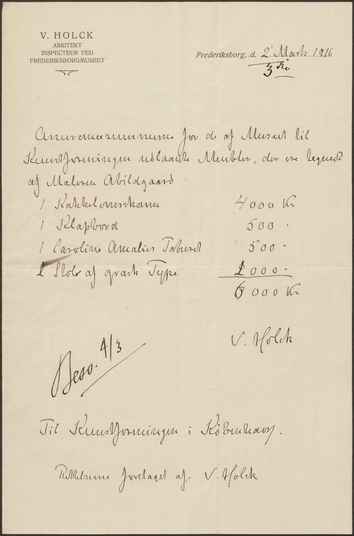 V. HOLCK
ARKITEKT
INSPECTEUR VED
FREDERIKSBORGMUSEET
Frederiksborg, d. 2' Marts 1916
Assurancesummerne for de af Museet til
Kunstforeningen udlaante Møbler, der ere tegnet
af Maleren Abildgaard
1 Kakkelovnsskærm 4000 Kr
1 Klapbord 500 -
1 Caroline Amalies Taburet 500 -
2 Stole af græsk Type 1000 -
6000 Kr
V. Holck
Besv. 4/3
Til Kunstforeningen i København.
foretaget af V. Holck